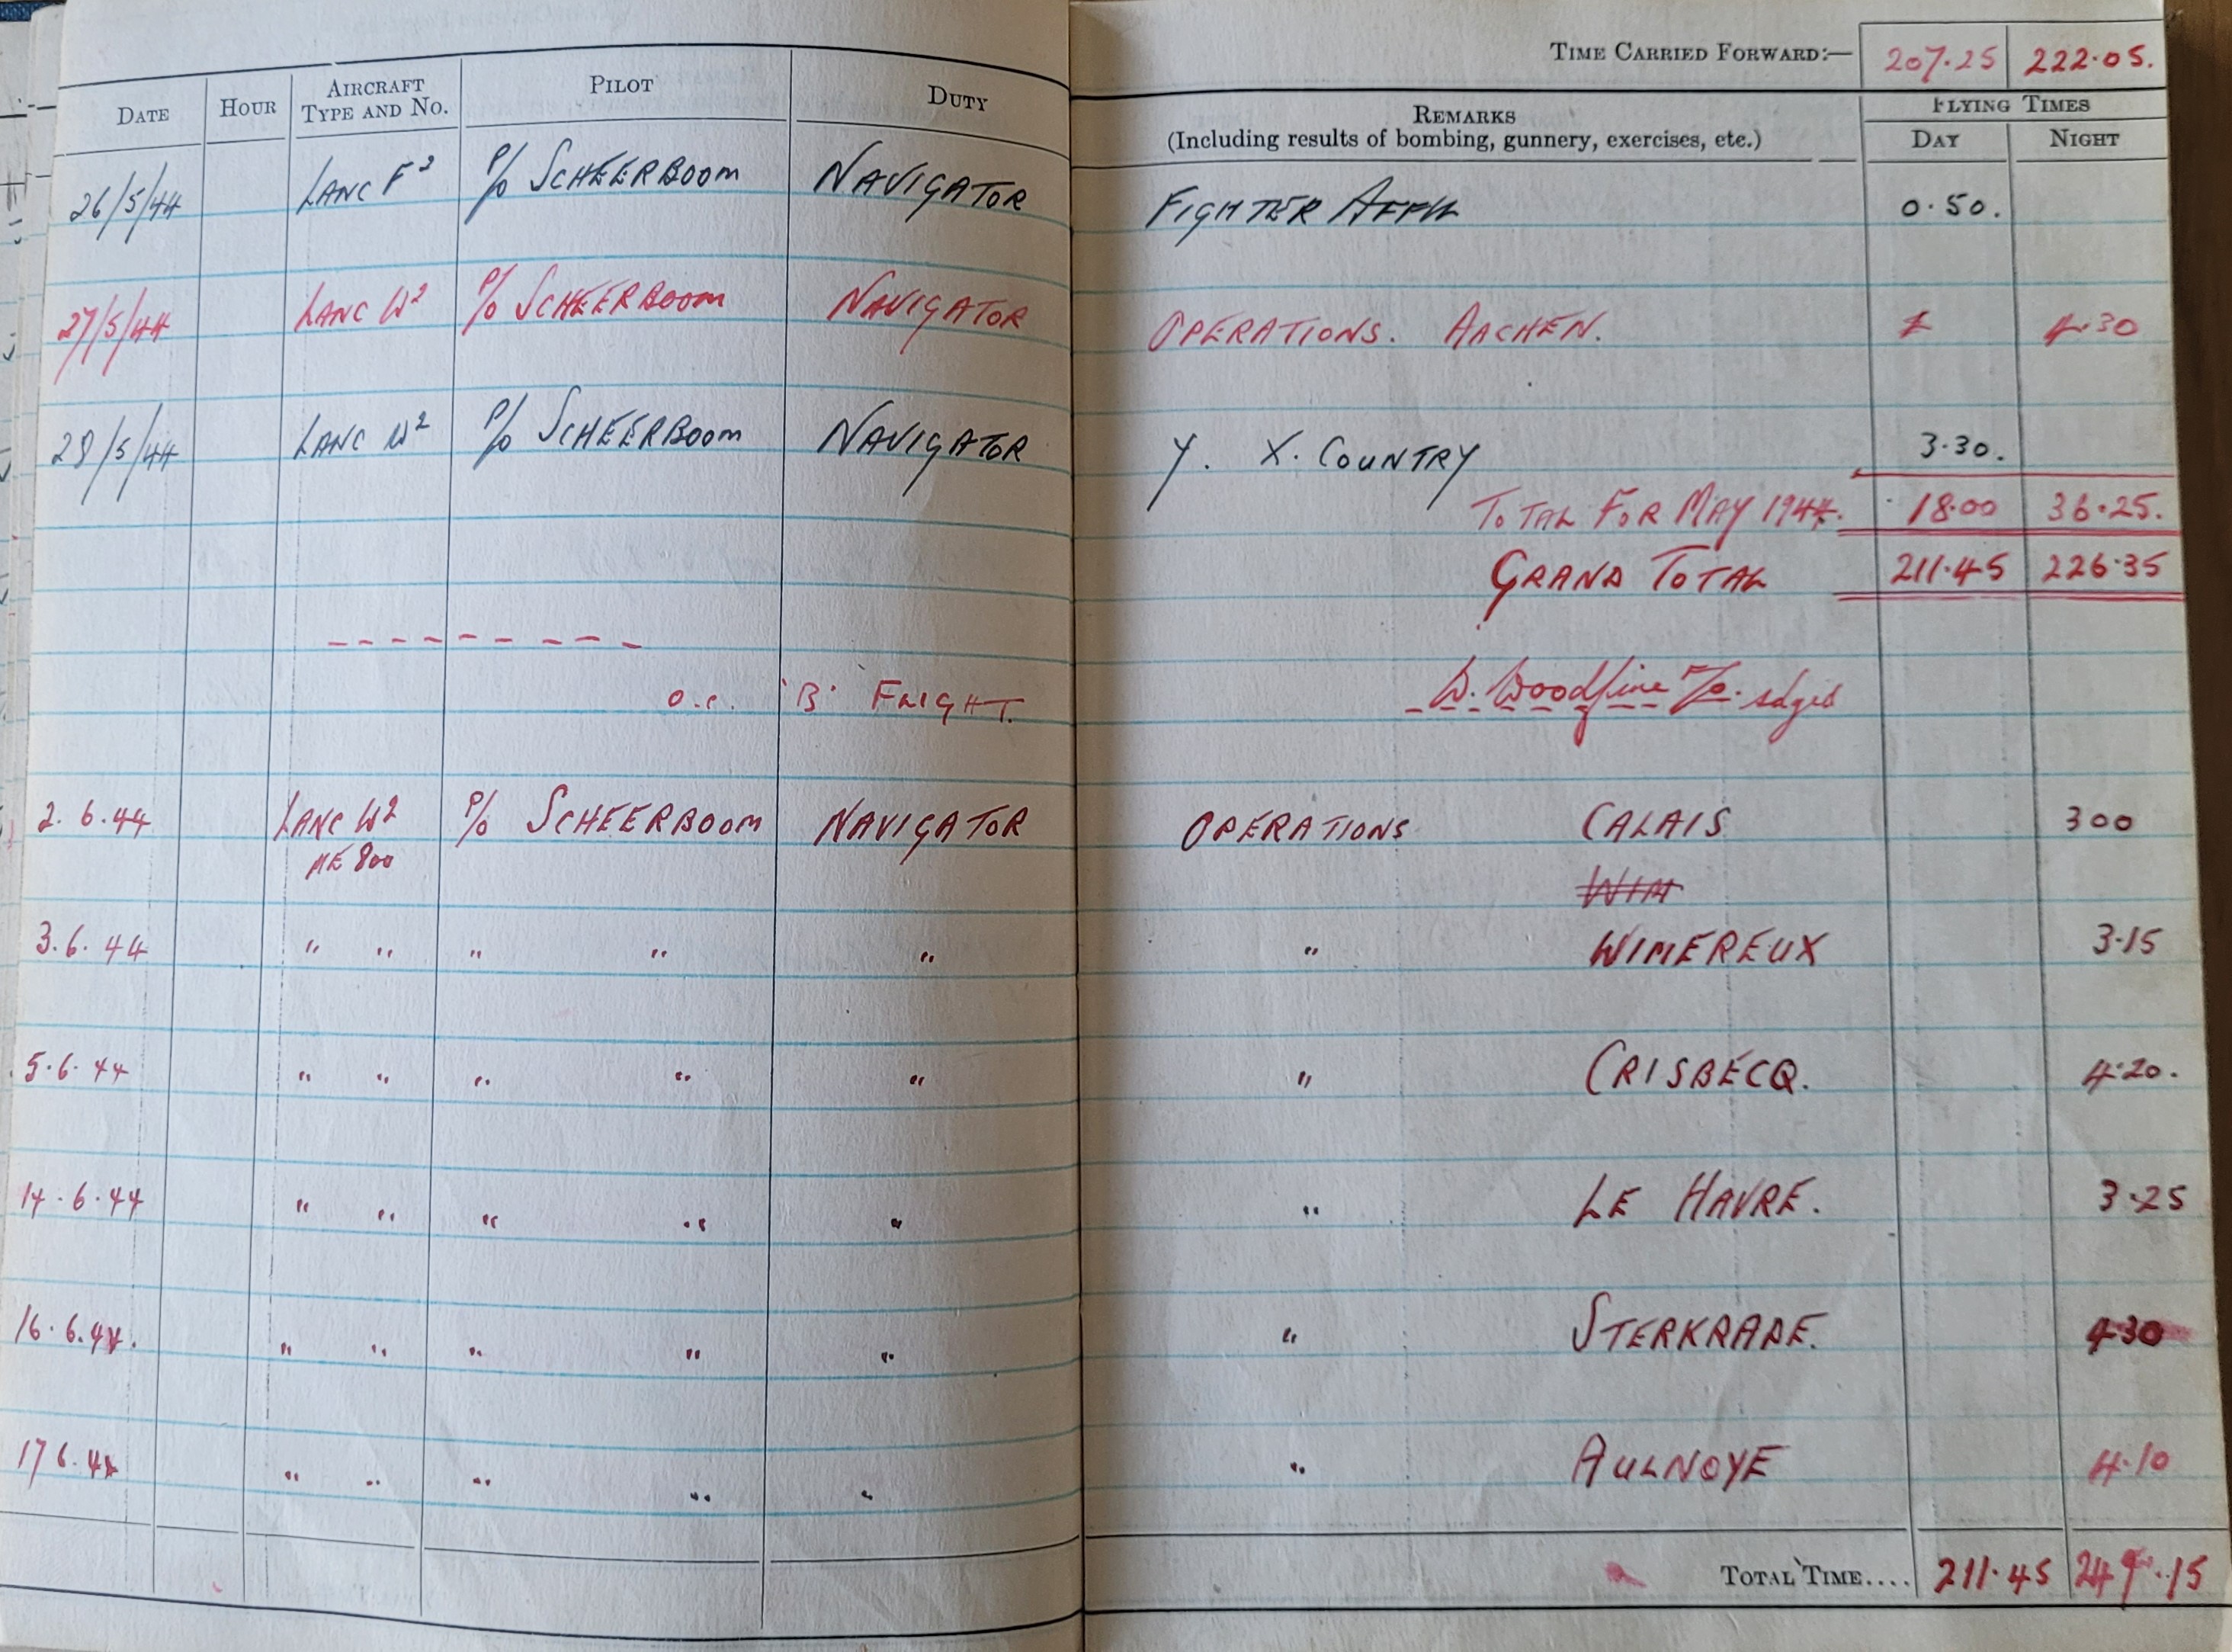 TIME CARRIED FORWARD:— 207.25 222.05.
DATE HOUR AIRCRAFT TYPE AND NO. PILOT DUTY REMARKS (Including results of bombing, gunnery, exercises, etc.) FLYING TIMES DAY NIGHT
26/5/44 LANC F² P/O SCHEERBOOM NAVIGATOR FIGHTER AFFIL 0.50.
27/5/44 LANC W² P/O SCHEERBOOM NAVIGATOR OPERATIONS. AACHEN. 4.30
28/5/44 LANC W² P/O SCHEERBOOM NAVIGATOR Y. X. COUNTRY 3.30.
TOTAL FOR MAY 1944. 18.00 36.25.
GRAND TOTAL 211.45 226.35
O.C. 'B' FLIGHT. W. Woodfine F/O.
2.6.44 LANC W² P/O SCHEERBOOM NAVIGATOR OPERATIONS CALAIS 300
ME 800 WIM
3.6.44 " " " " " " WIMEREUX 3.15
5.6.44 " " " " " " CRISBECQ. 4.20.
14.6.44 " " " " " " LE HAVRE. 3.25
16.6.44. " " " " " " STERKRADE. 4.30
17 6.44 " " " " " " AULNOYE 4.10
TOTAL TIME.... 211.45 249.15